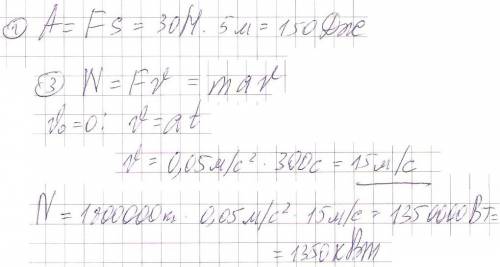 ① A = Fs = 30Н · 5м = 150Дж
③ N = Fv = mav
v₀ = 0: v = at
v = 0,05м/с² · 300с = 15м/с
N = 1800000кг · 0,05м/с² · 15м/с = 1350000Вт =
= 1350кВт